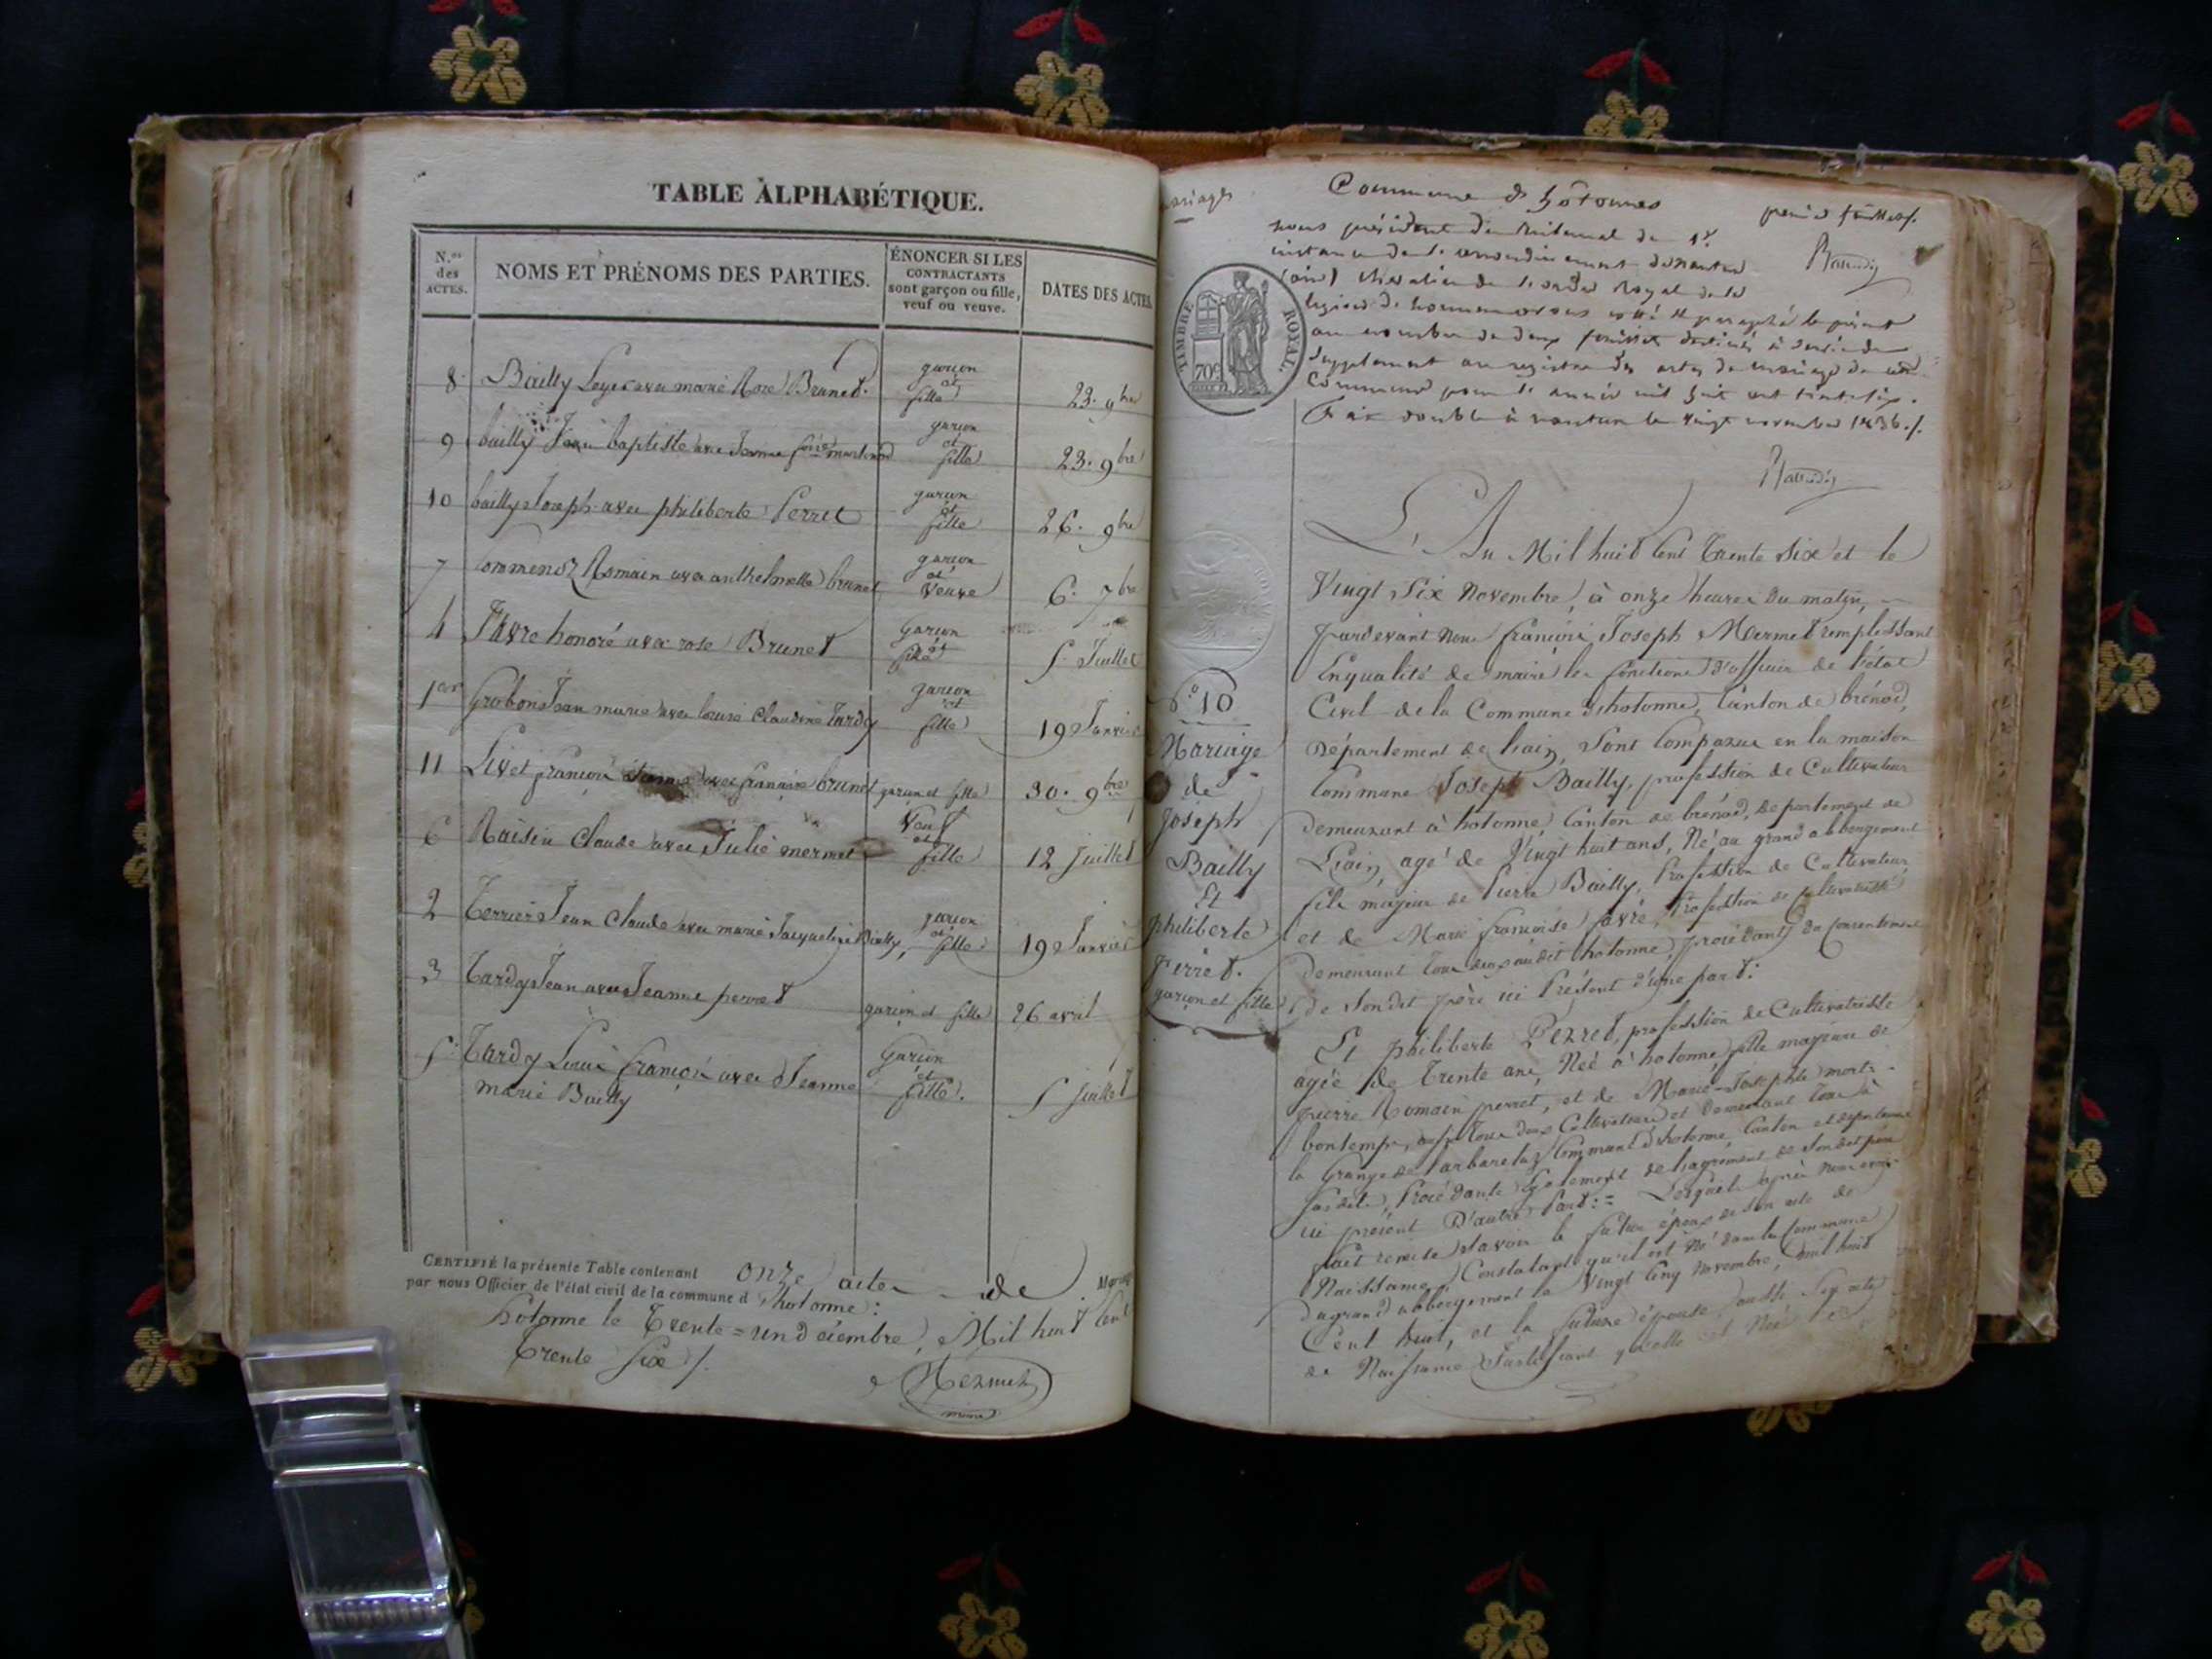 TABLE ALPHABÉTIQUE.
N.os des ACTES.
NOMS ET PRÉNOMS DES PARTIES.
ÉNONCER SI LES CONTRACTANTS sont garçon ou fille, veuf ou veuve.
DATES DES ACTES.
8 Bailly Leger avec marie Rose Brunet. garçon et fille 23. 9bre
9 bailly Jean baptiste avec Jeanne garçon et fille 23. 9bre
10 bailly Joseph avec philiberte Perret garçon et fille 26. 9bre
7 Commenoz Romain avec anthelmette brunet garçon et Veuve 6. 7bre
4 Favre honoré avec rose Brunet garçon et fille 5. Juillet
1er Grobon Jean marie avec louise Claudine Tardy garçon et fille 19 Janvier
11 Livet françois avec françoise brunet garçon et fille 30. 9bre
6 Raisin Claude avec Julie mermet Veuf et fille 12 Juillet
2 Terrier Jean Claude avec marie Jacqueline Bailly, garçon et fille 19 Janvier
3 Tardy Jean avec Jeanne perret garçon et fille 26 avril
5 Tardy Louis françois avec Jeanne marie Bailly garçon et fille. 5 Juillet
CERTIFIÉ la présente Table contenant onze actes de
par nous Officier de l'état civil de la commune d'hotonne:
hotonne le Trente=un décembre, Mil huit Cent
Trente Six /.
Mermet
maire
mariages
Commune de hotonnes
premier feuillet /.
nous président du tribunal de 1re
instance de l'arrondissement de nantua
(ain) chevalier de l'ordre Royal de la
legion de honneur avons coté et paraphé le présent
au nombre de deux feuillets destinés à servir de
supplement au registre des actes de mariage de
Commune pour l'année mil huit cent trente six.
Fait double à nantua le vingt novembre 1836 /.
TIMBRE ROYAL.
70c
N.o 10
Mariage
de
Joseph
Bailly
Et
philiberte
Perret.
garçon et fille
L'An Mil huit Cent Trente Six et le
Vingt Six Novembre, à onze heures du matin,
pardevant Nous françois Joseph Mermet remplissant
En qualité de maire les fonctions d'officier de l'état
Civil de la Commune d'hotonne, Canton de brénod,
Département de l'ain, Sont Comparus en la maison
Commune Joseph Bailly, profession de Cultivateur
demeurant à hotonne, Canton de brénod, departement de
L'ain, agé de Vingt huit ans, Né au grand abbergement
fils majeur de Pierre Bailly, Profession de Cultivateur,
et de Marie françoise favre, Profession de Cultivatrice
demeurant tous deux audit hotonne, procédant du Consentement
de Son dit père ici Présent d'une part:
Et philiberte Perret, profession de Cultivatrice
agée de Trente ans, Née à hotonne, fille majeure de
pierre Romain perret, et de Marie-Josephte mort-
bontemps, aussi Tous deux Cultivateurs et Demeurant Tous à
la Grange de Commune d'hotonne, Canton et departement
Susdits, Procédante Egalement de l'agrément de Son dit père
ici présent D'autre Part:= Lesquels après nous avoir
fait remise Savoir le futur époux de Son acte de
Naissance, Constatant qu'il est Né dans la Commune
du grand abbergement le Vingt Cinq Novembre, mil huit
Cent huit, et la future épouse aussi Son acte
de Naissance Justifiant qu'elle est Née